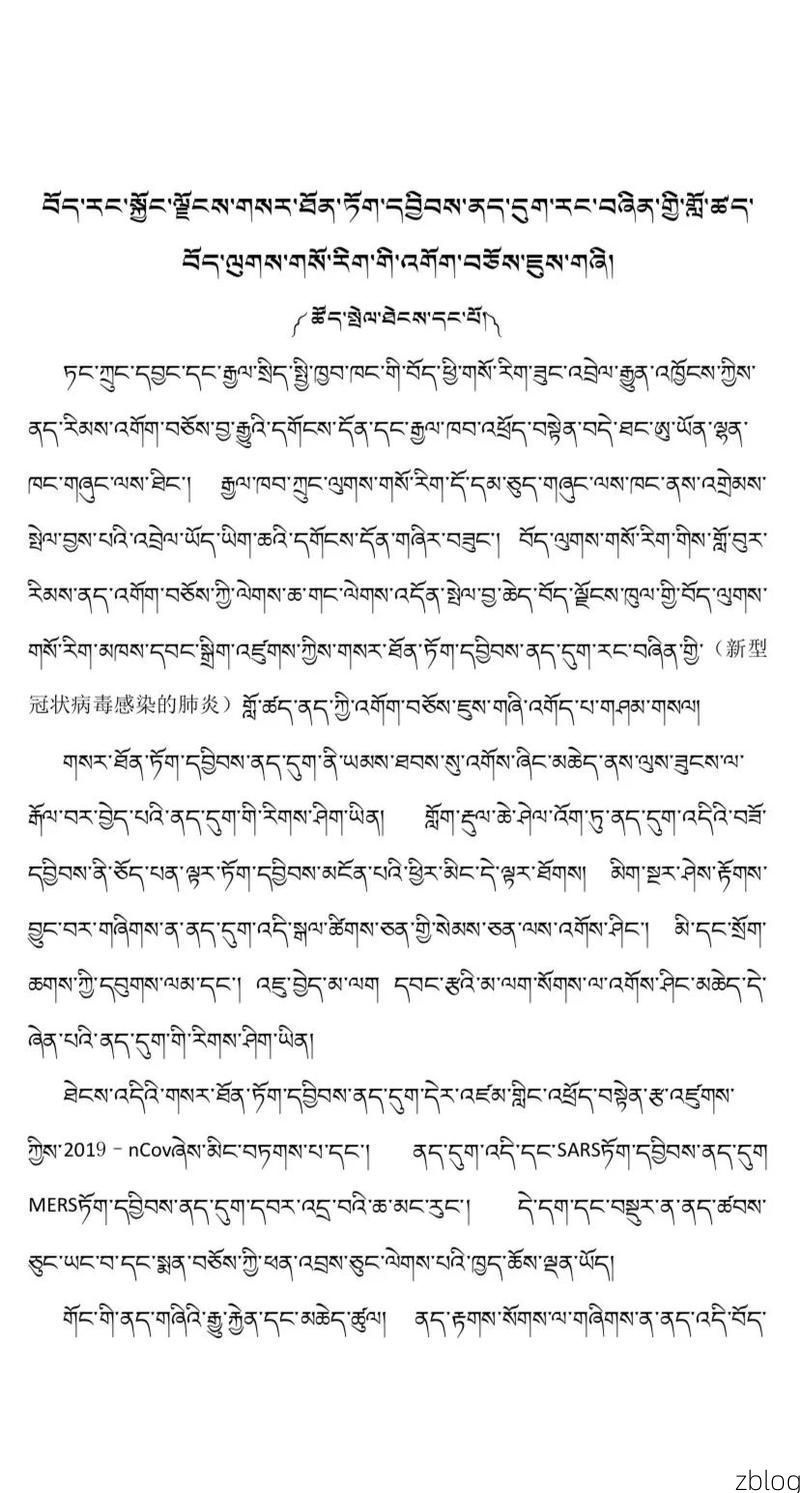 བོད་རང་སྐྱོང་ལྗོངས་གསར་ཐོན་ཏོག་དབྱིབས་ནད་དུག་རང་བཞིན་གྱི་གློ་ཚད་
བོད་ལུགས་གསོ་རིག་གི་འགོག་བཅོས་ཇུས་གཞི།
༼ཚོད་སྤེལ་ཐེངས་དང་པོ།༽
ཏང་ཀྲུང་དབྱང་དང་རྒྱལ་སྲིད་སྤྱི་ཁྱབ་ཁང་གི་བོད་ཕྱི་གསོ་རིག་ཟུང་འབྲེལ་རྒྱུན་འཁྱོངས་ཀྱིས་
ནད་རིམས་འགོག་བཅོས་བྱ་རྒྱུའི་དགོངས་དོན་དང་རྒྱལ་ཁབ་འཕྲོད་བསྟེན་བདེ་ཐང་ཨུ་ཡོན་ལྷན་
ཁང་གཞུང་ལས་ཐིང་། རྒྱལ་ཁབ་ཀྲུང་ལུགས་གསོ་རིག་དོ་དམ་ཅུད་གཞུང་ལས་ཁང་ནས་འགྲེམས་
སྤེལ་བྱས་པའི་འབྲེལ་ཡོད་ཡིག་ཆའི་དགོངས་དོན་གཞིར་བཟུང་། བོད་ལུགས་གསོ་རིག་གིས་གློ་བུར་
རིམས་ནད་འགོག་བཅོས་ཀྱི་ལེགས་ཆ་གང་ལེགས་འདོན་སྤེལ་བྱ་ཆེད་བོད་ལྗོངས་ཁུལ་གྱི་བོད་ལུགས་
གསོ་རིག་མཁས་དབང་སྒྲིག་འཛུགས་ཀྱིས་གསར་ཐོན་ཏོག་དབྱིབས་ནད་དུག་རང་བཞིན་གྱི་（新型
冠状病毒感染的肺炎）གློ་ཚད་ནད་ཀྱི་འགོག་བཅོས་ཇུས་གཞི་འགོད་པ་གཤམ་གསལ།
གསར་ཐོན་ཏོག་དབྱིབས་ནད་དུག་ནི་ཡམས་ཐབས་སུ་འགོས་ཞིང་མཆེད་ནས་ལུས་ཟུངས་ལ་
རྒོལ་བར་བྱེད་པའི་ནད་དུག་གི་རིགས་ཤིག་ཡིན། གློག་རྡུལ་ཆེ་ཤེལ་འོག་ཏུ་ནད་དུག་འདིའི་བཟོ་
དབྱིབས་ནི་ཅོད་པན་ལྟར་ཏོག་དབྱིབས་མངོན་པའི་ཕྱིར་མིང་དེ་ལྟར་ཐོགས། མིག་སྔར་ཤེས་རྟོགས་
བྱུང་བར་གཞིགས་ན་ནད་དུག་འདི་སྒལ་ཚིགས་ཅན་གྱི་སེམས་ཅན་ལས་འགོས་ཤིང་། མི་དང་སྲོག་
ཆགས་ཀྱི་དབུགས་ལམ་དང་། འཇུ་བྱེད་མ་ལག དབང་རྩའི་མ་ལག་སོགས་ལ་འགོས་ཤིང་མཆེད་དེ་
ཞེན་པའི་ནད་དུག་གི་རིགས་ཤིག་ཡིན།
ཐེངས་འདིའི་གསར་ཐོན་ཏོག་དབྱིབས་ནད་དུག་དེར་འཛམ་གླིང་འཕྲོད་བསྟེན་རྩ་འཛུགས་
ཀྱིས་2019－nCovཞེས་མིང་བཏགས་པ་དང་། ནད་དུག་འདི་དང་SARSཏོག་དབྱིབས་ནད་དུག
MERSཏོག་དབྱིབས་ནད་དུག་དབར་འདྲ་བའི་ཆ་མང་རུང་། དེ་དག་དང་བསྡུར་ན་ནད་ཚབས་
ཅུང་ཡང་བ་དང་སྨན་བཅོས་ཀྱི་ཕན་འབྲས་ཅུང་ལེགས་པའི་ཁྱད་ཆོས་ལྡན་ཡོད།
གོང་གི་ནད་གཞིའི་རྒྱུ་རྐྱེན་དང་མཆེད་ཚུལ། ནད་རྟགས་སོགས་ལ་གཞིགས་ན་ནད་འདི་བོད་
zblog